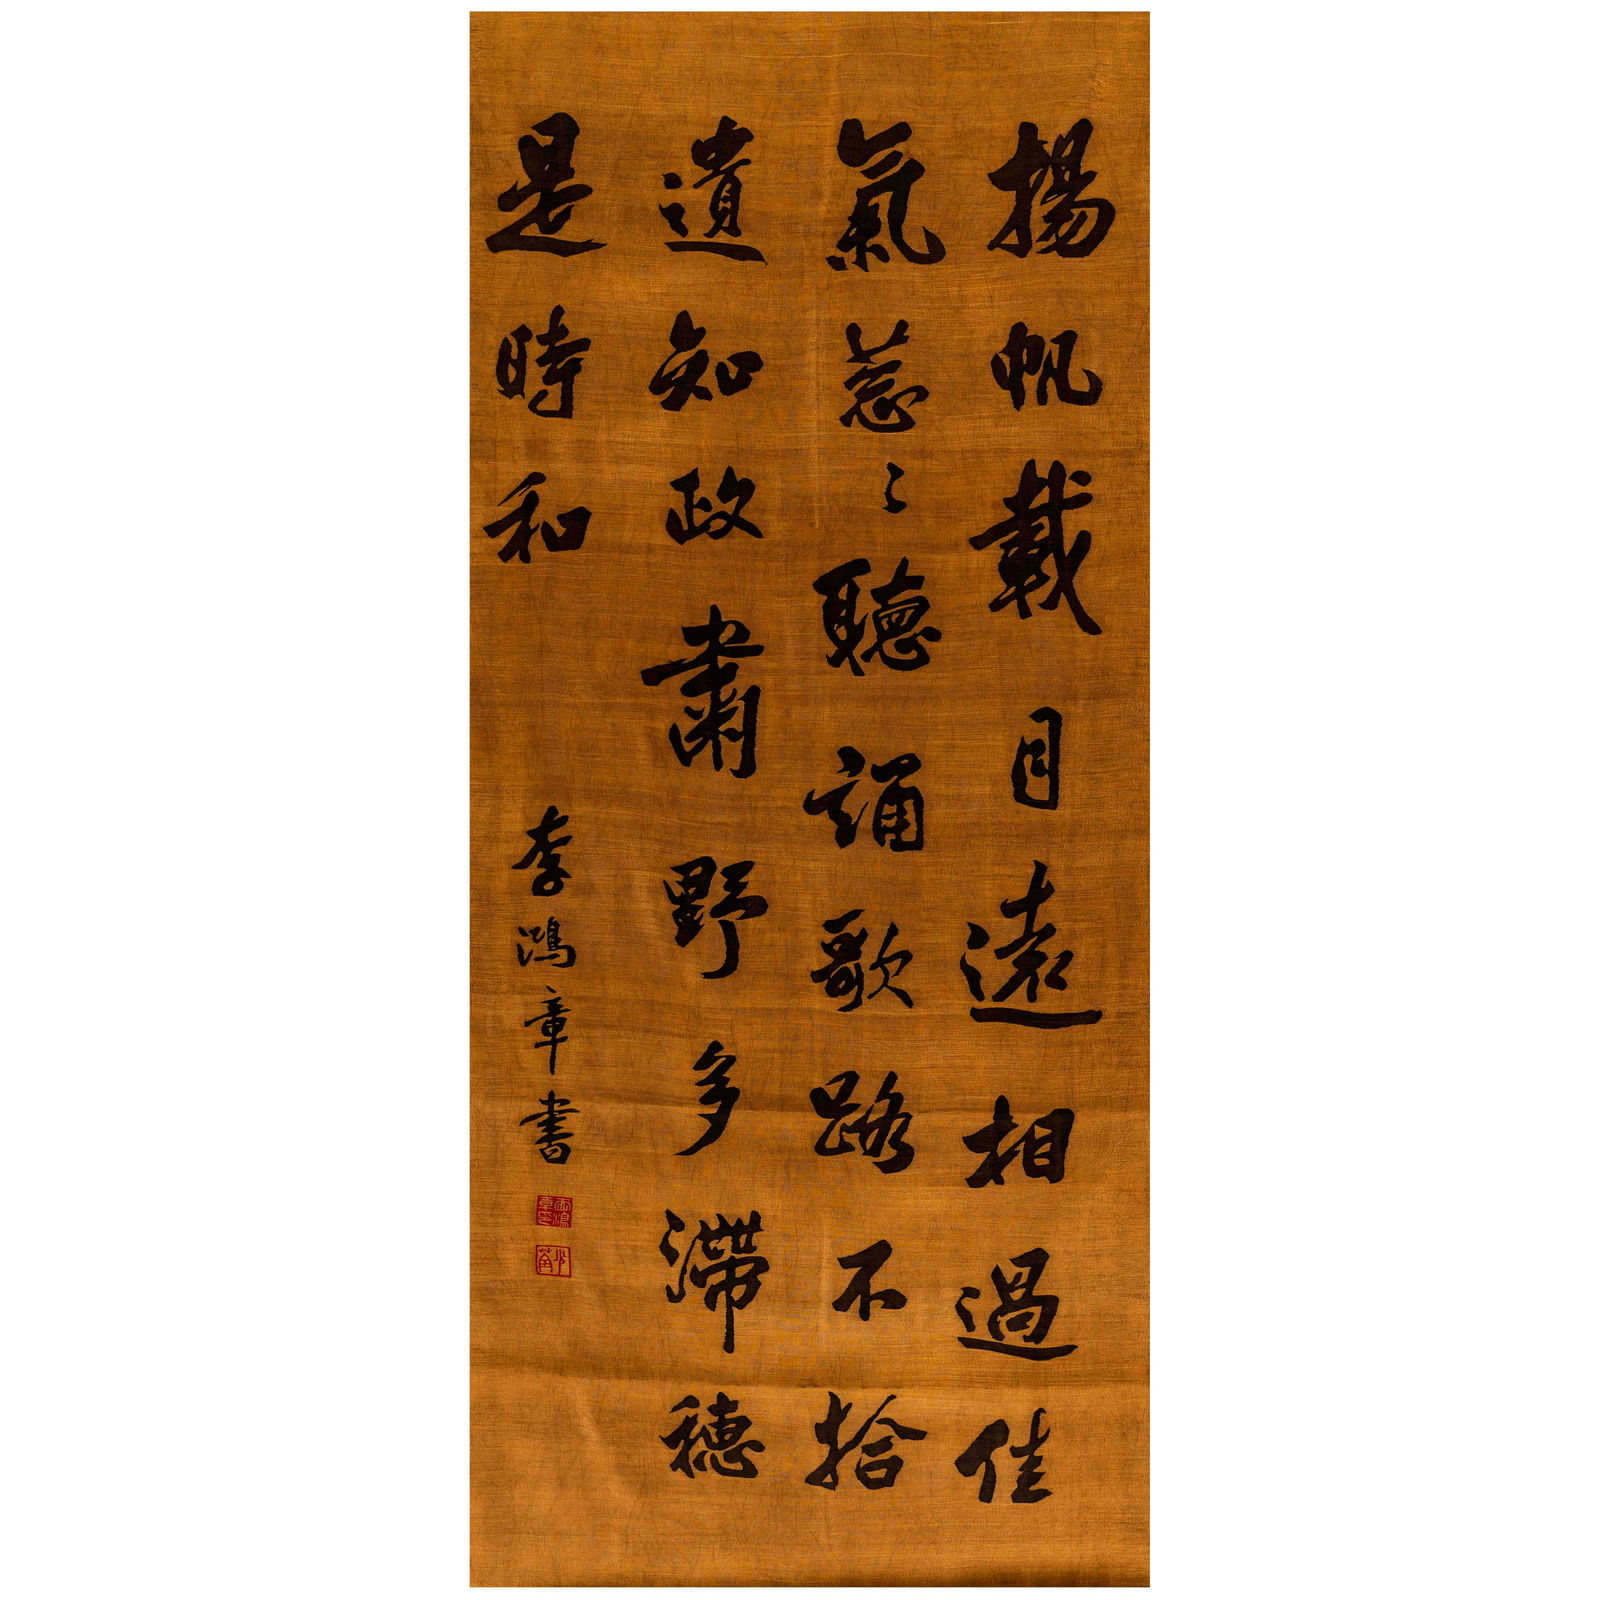 揚帆載月遠相過佳
氣葱〻聽誦歌路不拾
遺知政肅野多滯穗
是時和
李鴻章書